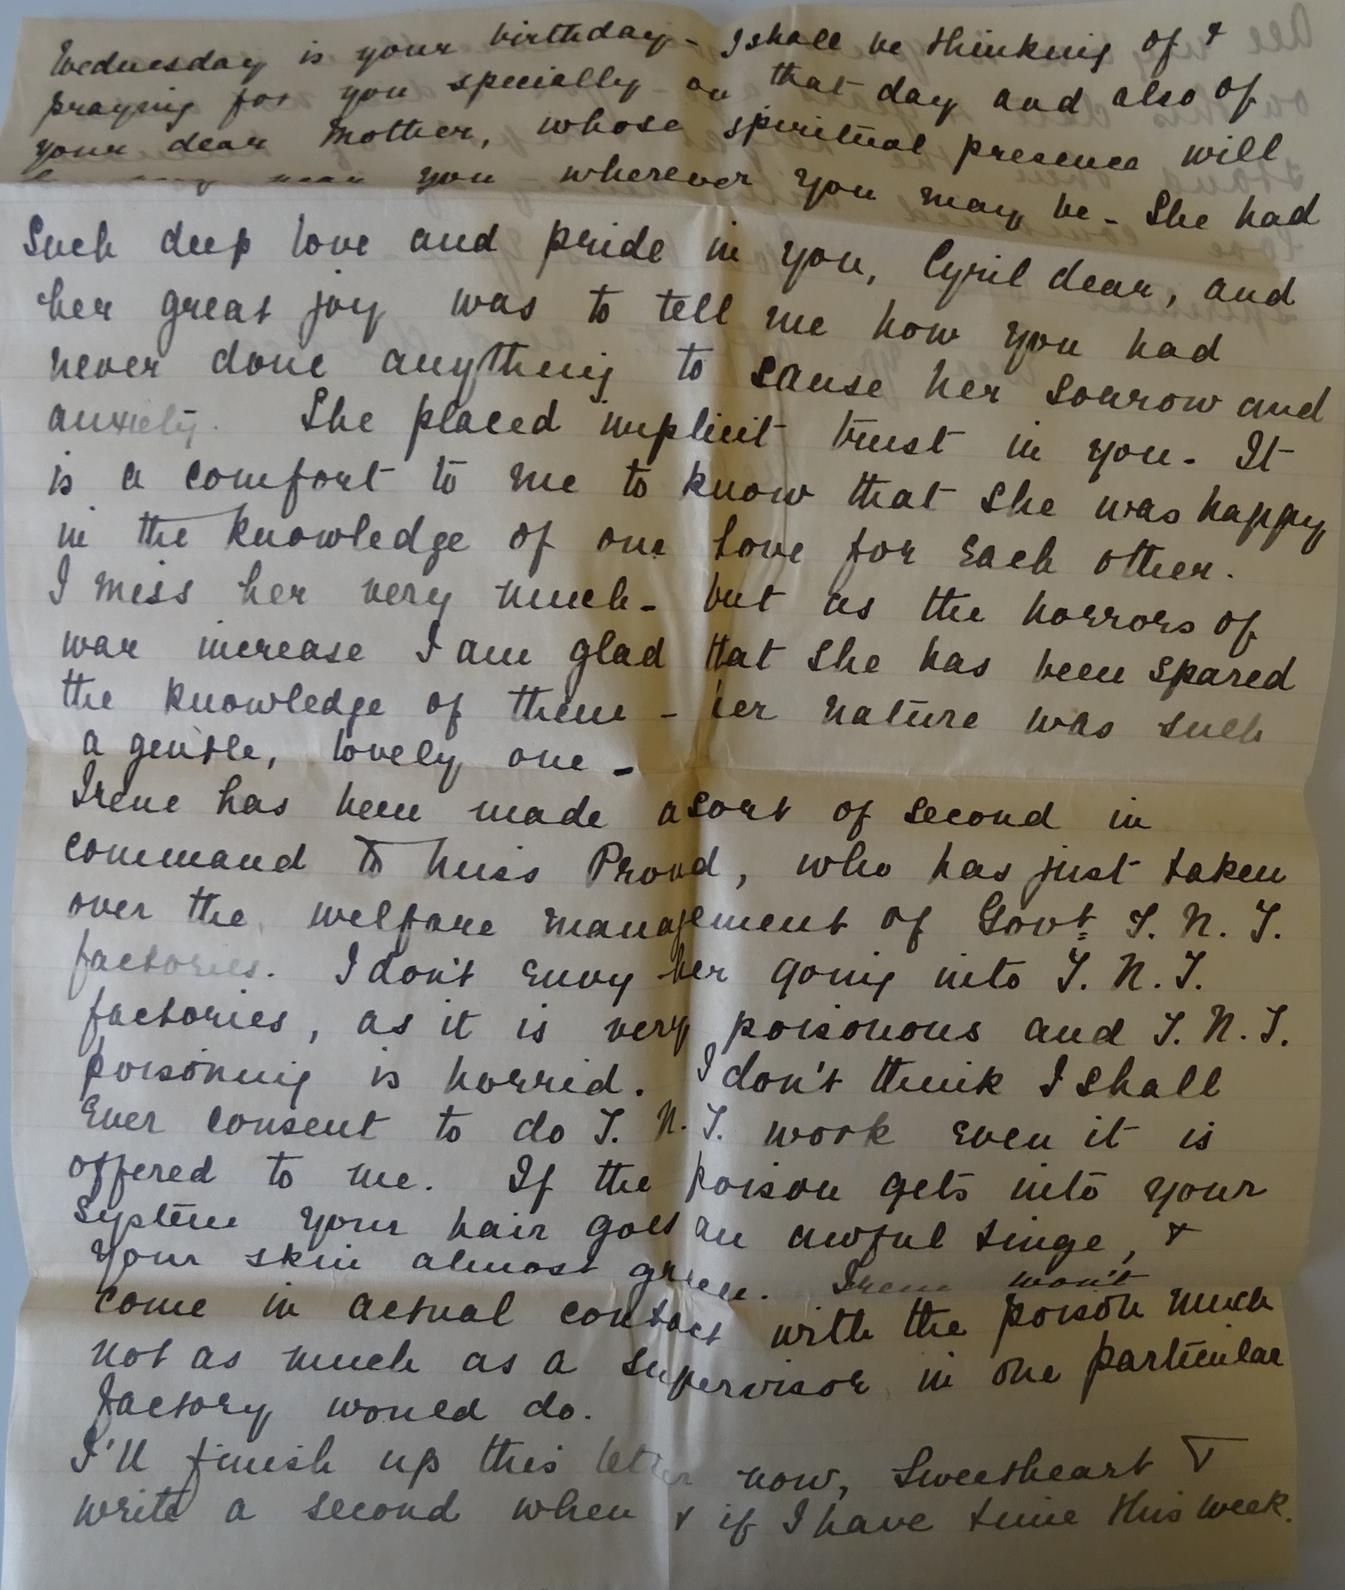 Wednesday is your birthday - I shall be thinking of &
praying for you specially on that day and also of
your dear Mother, whose spiritual presence will
near you wherever you may be - She had
Such deep love and pride in you, Cyril dear, and
her great joy was to tell me how you had
never done anything to cause her sorrow and
anxiety. She placed implicit trust in you - It
is a comfort to me to know that she was happy
in the knowledge of our love for each other.
I miss her very much - but as the horrors of
war increase I am glad that she has been spared
the knowledge of them - her nature was such
a gentle, lovely one -
Irene has been made a sort of second in
command to Miss Proud, who has just taken
over the welfare management of Govt T. N. T.
factories. I don't envy her going into T. N. T.
factories, as it is very poisonous and T. N. T.
poisoning is horrid. I don't think I shall
ever consent to do T. N. T. work even it is
offered to me. If the poison gets into your
system your hair goes an awful tinge, &
your skin almost green. Irene won't
come in actual contact with the poison much
not as much as a supervisor in one particular
factory would do.
I'll finish up this letter now, Sweetheart &
write a second when & if I have time this week.